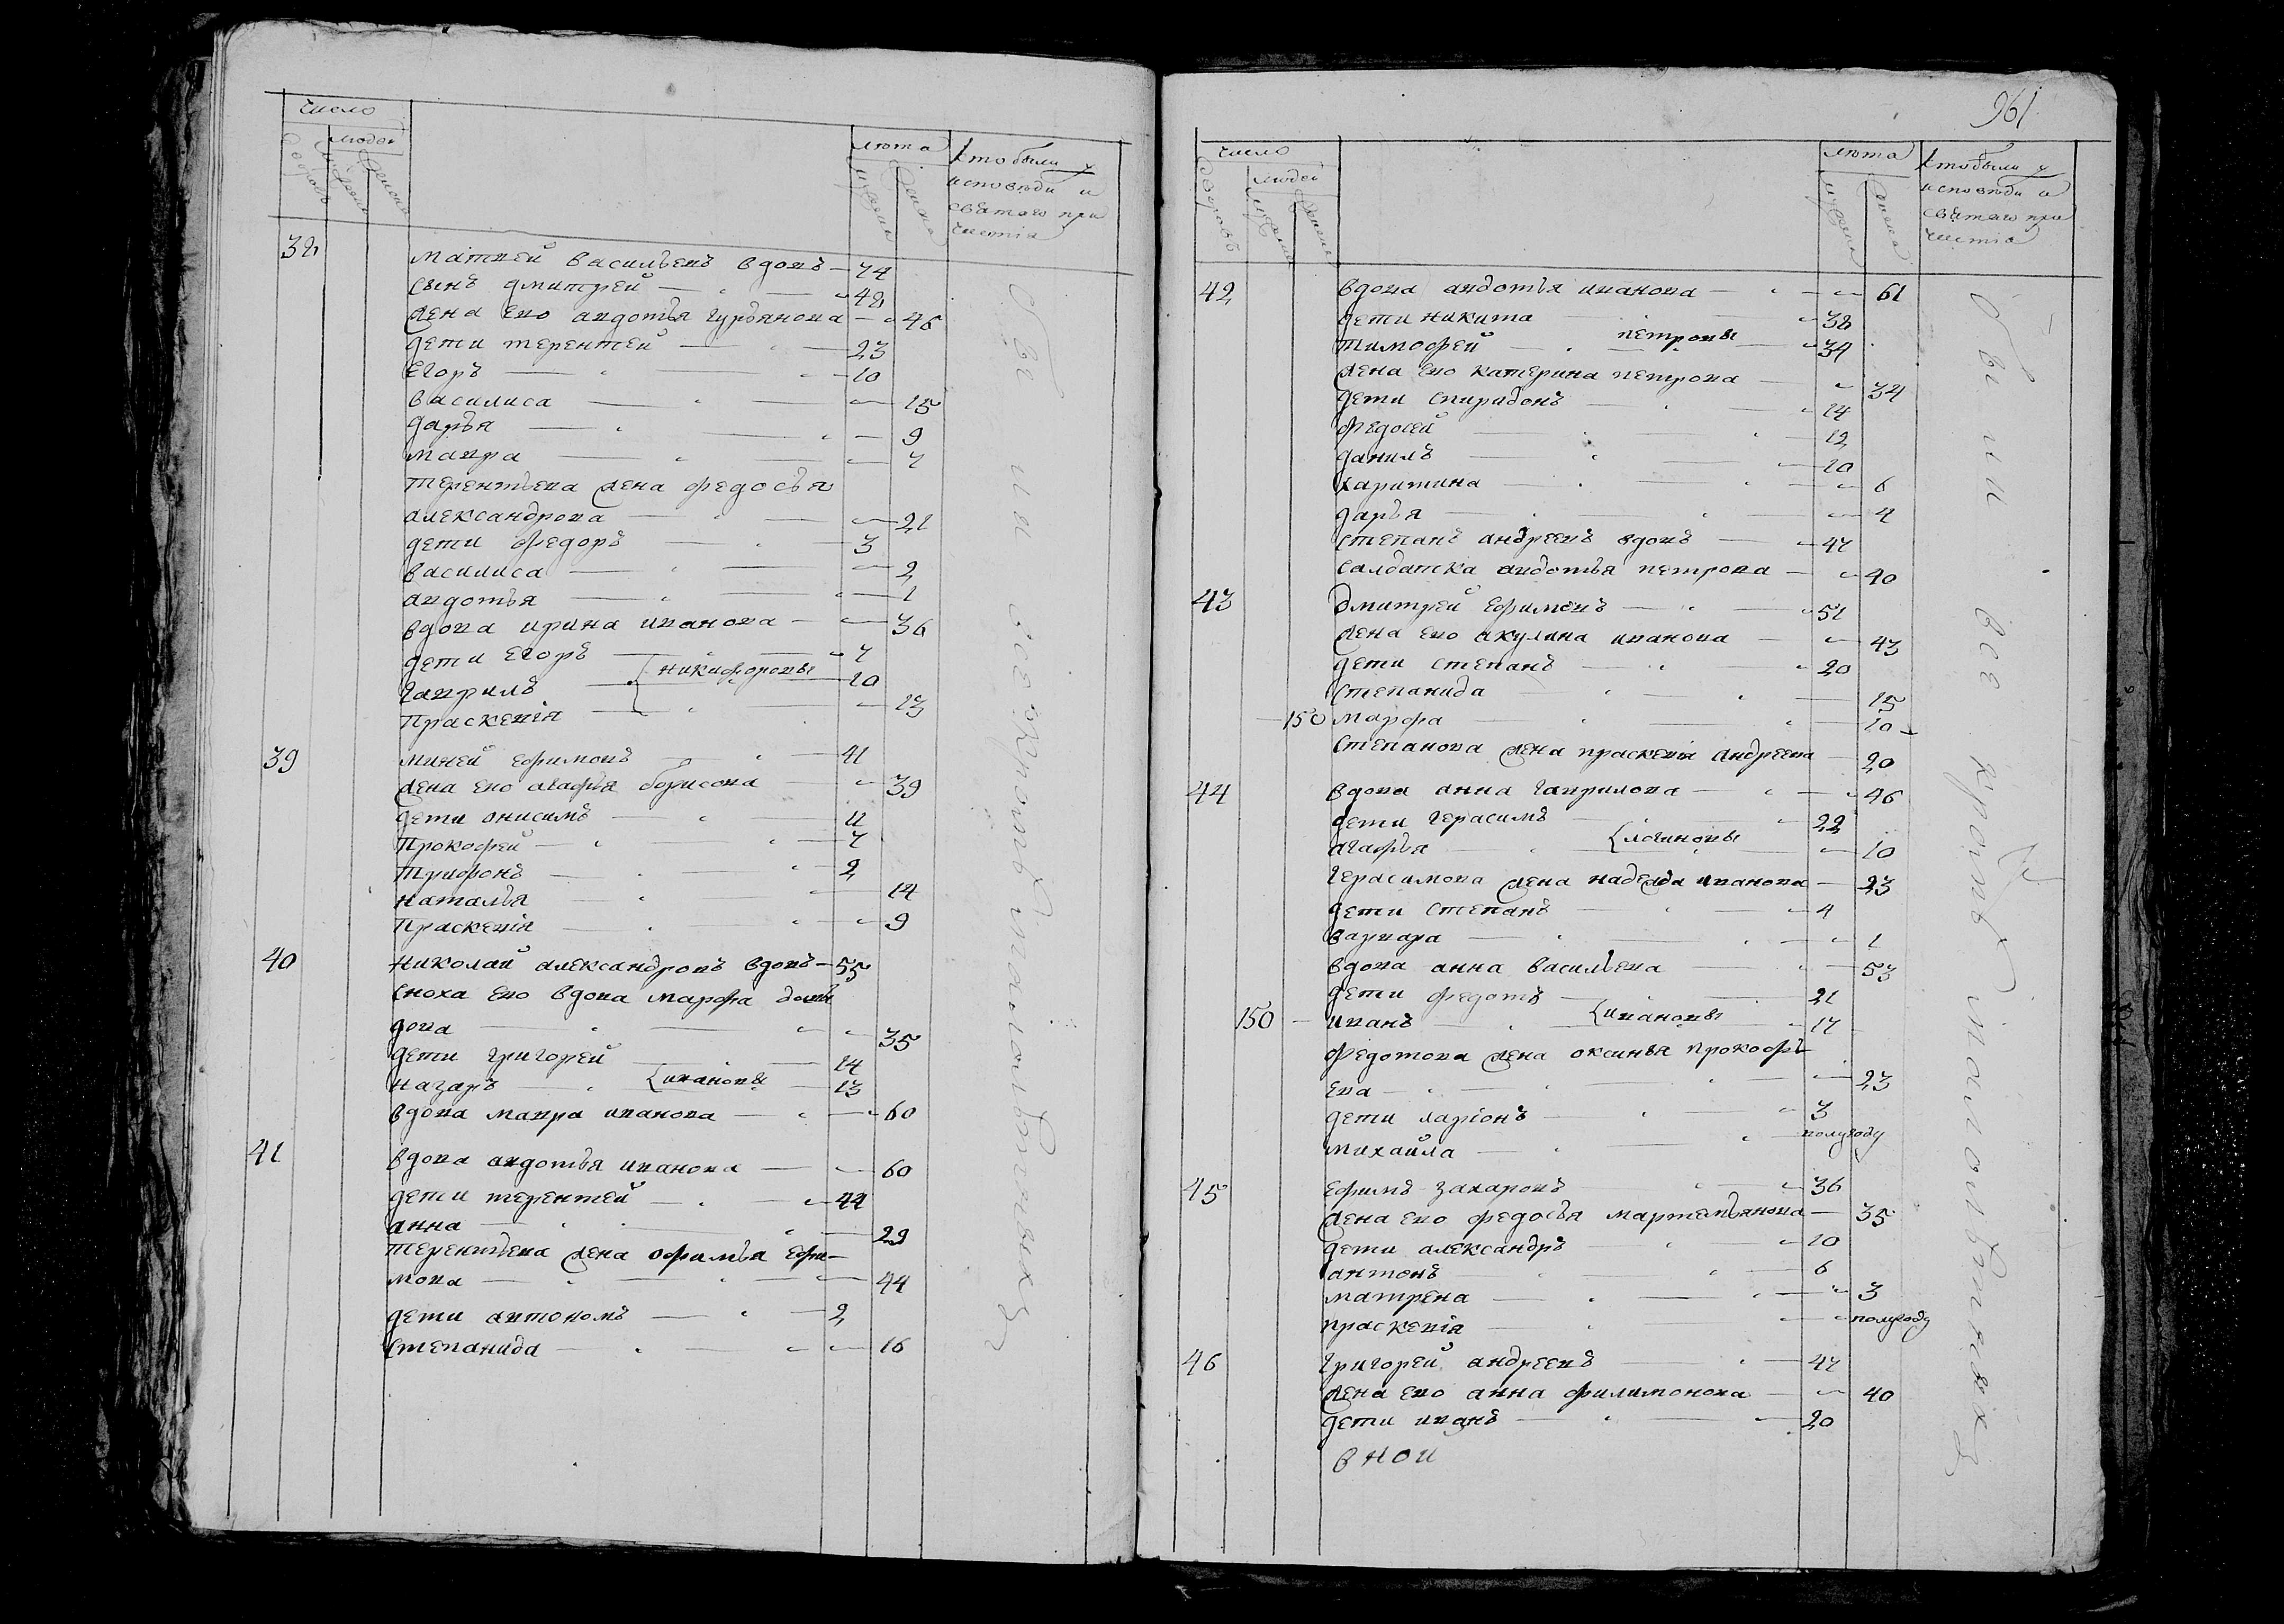 число
людей
дворовъ
мужеска
женска
лѣта
мужеска
женска
Кто были у
исповѣди и
святаго при
частїа
38
матвей васильевъ вдовъ — 74
сынъ дмитрей — 48
жена ево авдотья гурьянова — 46
дети терентей — 23
Егоръ — 10
василиса — 15
дарья — 9
мавра — 7
терентьева жена федосья
александрова — 21
дети федоръ — 3
василиса — 2
авдотья — 1
вдова ирина иванова — 36
дети Егоръ — 7
никифоровы
гаврилъ — 10
Праскевїя — 13
39
миней ефимовъ — 41
жена ево агафья борисова — 39
дети онисимъ — 11
Прокофей — 7
Трифонъ — 2
наталья — 14
Праскевїя — 9
40
николай александровъ вдовъ — 55
сноха ево вдова марфа
дова — 35
дети григорей — 14
назаръ — ивановы — 13
вдова мавра иванова — 60
41
вдова авдотья иванова — 60
дети терентей — 44
анна — 29
терентьева жена офимья ефи-
мова — 44
дети автономъ — 2
степанида — 16
Были все кромѣ малолѣтныхъ
961
число
людей
дворовъ
мужеска
женска
лѣта
мужеска
женска
Кто были у
исповѣди и
святаго при
частїа
42
вдова авдотья иванова — 61
дети никита — 38
петровы
тимофей — 34
жена ево катерина петрова — 34
дети спиридонъ — 14
федосей — 12
данилъ — 10
харитина — 6
дарья — 4
степанъ андреевъ вдовъ — 47
салдатка авдотья петрова — 40
43
дмитрей ефимовъ — 51
жена ево акулина иванова — 43
дети степанъ — 20
степанида — 15
150 марфа — 10
степанова жена праскевїя андреева — 20
44
вдова анна гаврилова — 46
дети герасимъ — 22
логиновы
агафья — 10
герасимова жена надежда иванова — 23
дети степанъ — 4
варвара — 1
вдова анна васильева — 53
дети федотъ — 21
150 — иванъ — ивановы — 17
федотова жена оксинья прокофь
ева — 23
дети ларїонъ — 3
михайла — полугоду
45
ефимъ захаровъ — 36
жена ево федосья мартемьянова — 35
дети александръ — 10
антонъ — 6
матрена — 3
праскевїя — полугоду
46
григорей андреевъ — 47
жена ево анна филимонова — 40
дети иванъ — 20
Были все кромѣ малолѣтныхъ